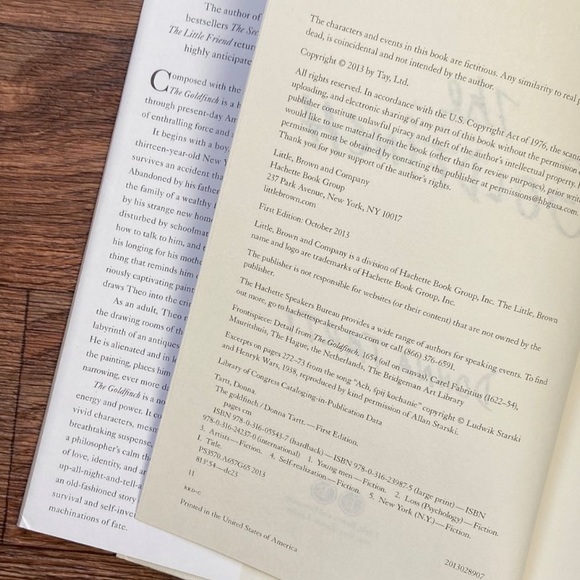 The author of
bestsellers The Sec
The Little Friend retur
highly anticipate
Composed with the
The Goldfinch is a h
through present-day Am
of enthralling force and
It begins with a boy
thirteen-year-old New Y
survives an accident tha
Abandoned by his father
the family of a wealthy
by his strange new home
disturbed by schoolmat
how to talk to him, and t
his longing for his moth
thing that reminds him
riously captivating paint
draws Theo into the crim
As an adult, Theo
the drawing rooms of th
labyrinth of an antiques
He is alienated and in l
the painting, places him
narrowing, ever more d
The Goldfinch is a no
energy and power. It co
vivid characters, mesm
breathtaking suspense,
a philosopher's calm the
of love, identity, and ar
up-all-night-and-tell-a
an old-fashioned story
survival and self-inven
machinations of fate.
The characters and events in this book are fictitious. Any similarity to real p
dead, is coincidental and not intended by the author.
Copyright © 2013 by Tay, Ltd.
All rights reserved. In accordance with the U.S. Copyright Act of 1976, the scann
uploading, and electronic sharing of any part of this book without the permission o
publisher constitute unlawful piracy and theft of the author's intellectual property.
would like to use material from the book (other than for review purposes), prior writ
permission must be obtained by contacting the publisher at permissions@hbgusa.com.
Thank you for your support of the author's rights.
Little, Brown and Company
Hachette Book Group
237 Park Avenue, New York, NY 10017
littlebrown.com
First Edition: October 2013
Little, Brown and Company is a division of Hachette Book Group, Inc. The Little, Brown
name and logo are trademarks of Hachette Book Group, Inc.
The publisher is not responsible for websites (or their content) that are not owned by the
publisher.
The Hachette Speakers Bureau provides a wide range of authors for speaking events. To find
out more, go to hachettespeakersbureau.com or call (866) 376-6591.
Frontispiece: Detail from The Goldfinch, 1654 (oil on canvas), Carel Fabritius (1622–54),
Mauritshuis, The Hague, the Netherlands, The Bridgeman Art Library
Excerpts on pages 272–73 from the song "Ach, śpij kochanie" copyright © Ludwik Starski
and Henryk Wars, 1938, reproduced by kind permission of Allan Starski.
Library of Congress Cataloging-in-Publication Data
Tartt, Donna.
The goldfinch / Donna Tartt.—First Edition.
pages cm
ISBN 978-0-316-05543-7 (hardback)—ISBN 978-0-316-23987-5 (large print)—ISBN
978-0-316-24237-0 (international) 1. Young men—Fiction. 2. Loss (Psychology)—Fiction.
3. Artists—Fiction. 4. Self-realization—Fiction. 5. New York (N.Y.)—Fiction.
I. Title.
PS3570.A657G65 2013
813'.54—dc23
2013028907
11
RRD-C
Printed in the United States of America